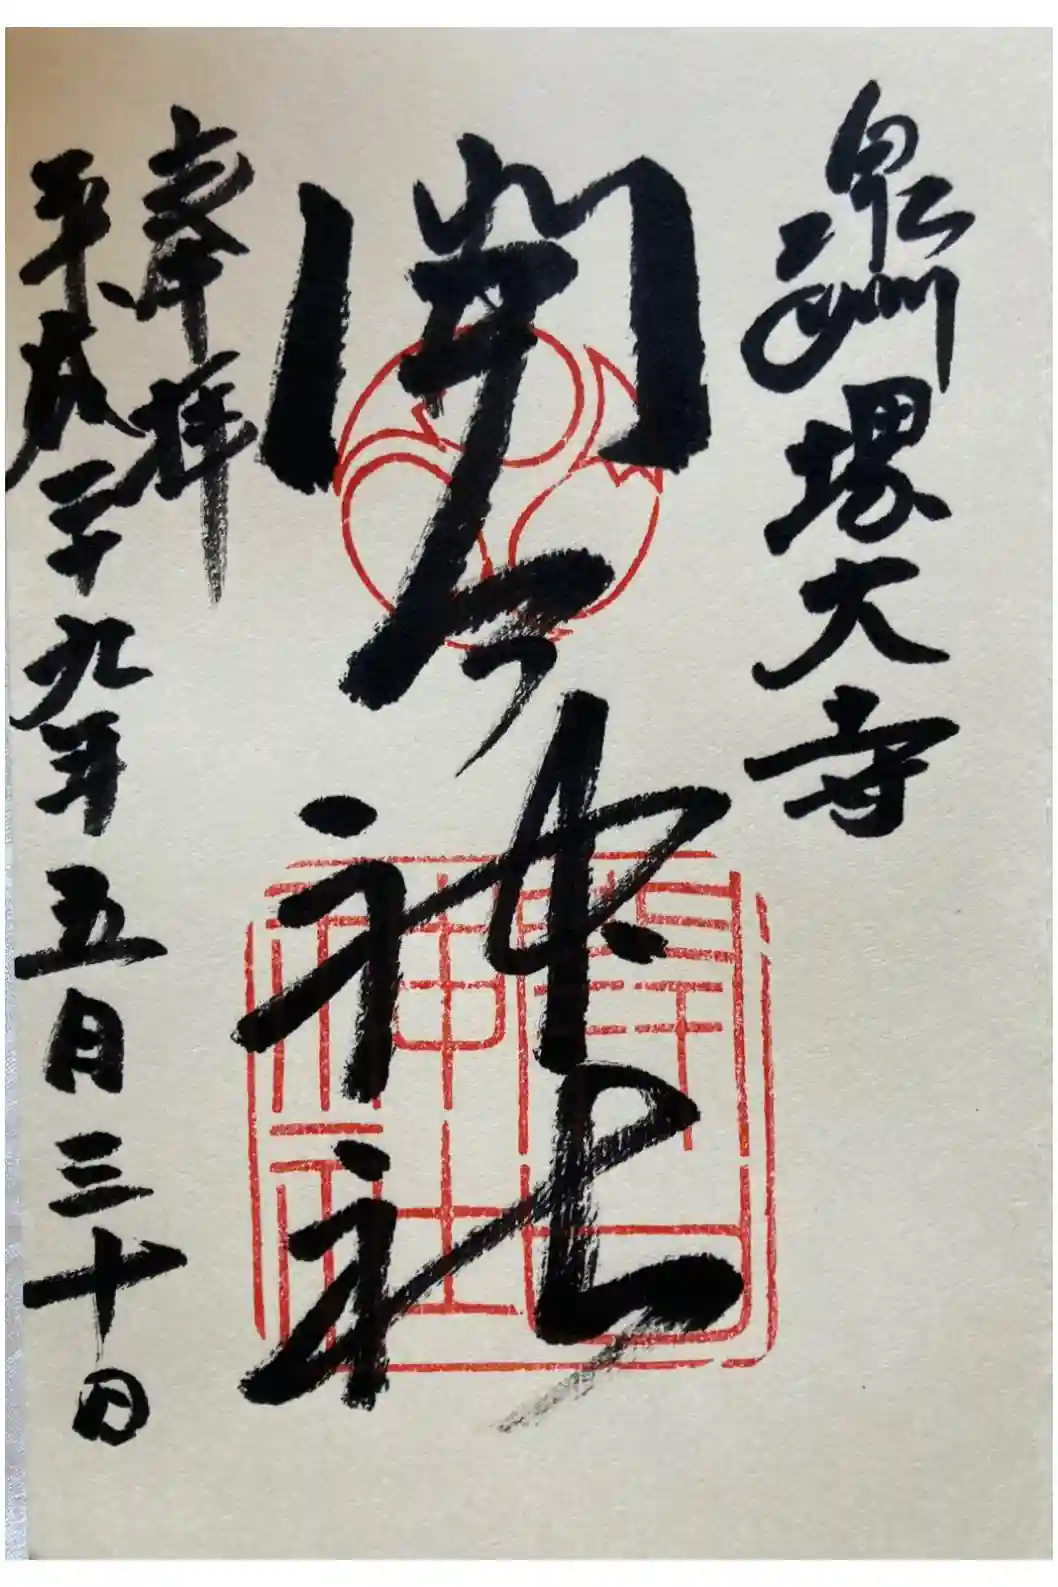 泉洲堺大寺
開口神社
奉拝
平成二十九年五月三十日
開口
神社